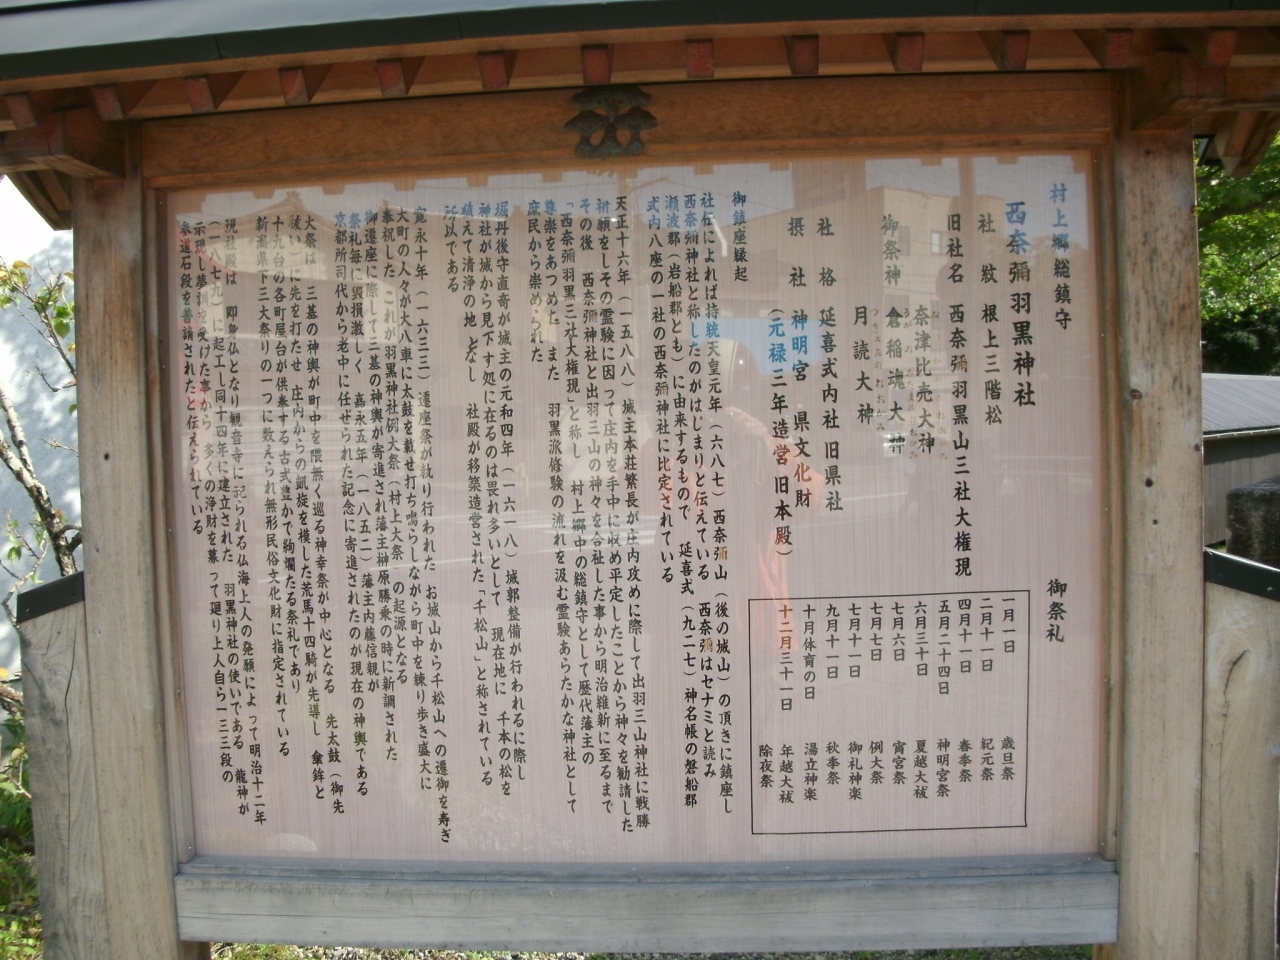 村上郷総鎮守
西奈彌羽黒神社
社紋 根上三階松
旧社名 西奈彌羽黒山三社大権現
御祭神 奈津比売大神
倉稲魂大神
月読大神
社格 延喜式内社 旧県社
摂社 神明宮 県文化財
(元禄三年造営 旧本殿)
御祭礼
一月一日 歳旦祭
二月十一日 紀元祭
四月十一日 春季祭
五月二十四日 神明宮祭
六月三十日 夏越大祓
七月六日 宵宮祭
七月七日 例大祭
七月十一日 御礼神楽
九月十一日 秋季祭
十月体育の日 湯立神楽
十二月三十一日 年越大祓
除夜祭
御鎮座縁起
社伝によれば持統天皇元年(六八七)西奈弥山(後の城山)の頂きに鎮座し
西奈弥神社と称したのがはじまりと伝えている 西奈弥はセナミと読み
瀬波郡(岩船郡とも)に由来するもので 延喜式(九二七)神名帳の磐船郡
式内八座の一社の西奈彌神社に比定されている
天正十六年(一五八八)城主本荘繁長が庄内攻めに際して出羽三山神社に戦勝
祈願をしその霊験に因って庄内を手中に収め平定したことから神々を勧請した
その後 西奈彌神社と出羽三山の神々を合社した事から明治維新に至るまで
「西奈彌羽黒三社大権現」と称し 村上郷中の総鎮守として歴代藩主の
尊崇をあつめた また 羽黒派修験の流れを汲む霊験あらたかな神社として
庶民から崇められた
堀丹後守直寄が城主の元和四年(一六一八)城郭整備が行われるに際し
神社が城から見下す処に在るのは畏れ多いとして 現在地に 千本の松を
植えて清浄の地となし 社殿が移築造営された「千松山」と称されている
所以である
寛永十年(一六三三)遷座祭が執り行われた お城山から千松山への遷御を寿ぎ
大町の人々が大八車に太鼓を載せ打ち鳴らしながら町中を練り歩き盛大に
奉祝した これが羽黒神社例大祭(村上大祭)の起源となる
御遷座に際して三基の神輿が寄進され藩主榊原勝乗の時に新調された
祭礼毎に毀損激しく 嘉永五年(一八五二)藩主内藤信親が
京都所司代から老中に任ぜられた記念に寄進されたのが現在の神輿である
大祭は 三基の神輿が町中を隈無く巡る神幸祭が中心となる 先太鼓(御先
祓い)に先を打たせ 庄内からの凱旋を模した荒馬十四騎が先導し 傘鉾と
十九台の各町屋台が供奉する古式豊かで絢爛たる祭礼であり
新潟県下三大祭りの一つに数えられ無形民俗文化財に指定されている
現社殿は 即身仏となり観音寺に祀られる仏海上人の発願によって明治十二年
(一八七九)に起工し同十四年に建立された 羽黒神社の使いである 龍神が
示現し夢訓を受けた事から 多くの浄財を募って廻り上人自ら一三三段の
参道石段を普請されたと伝えられている